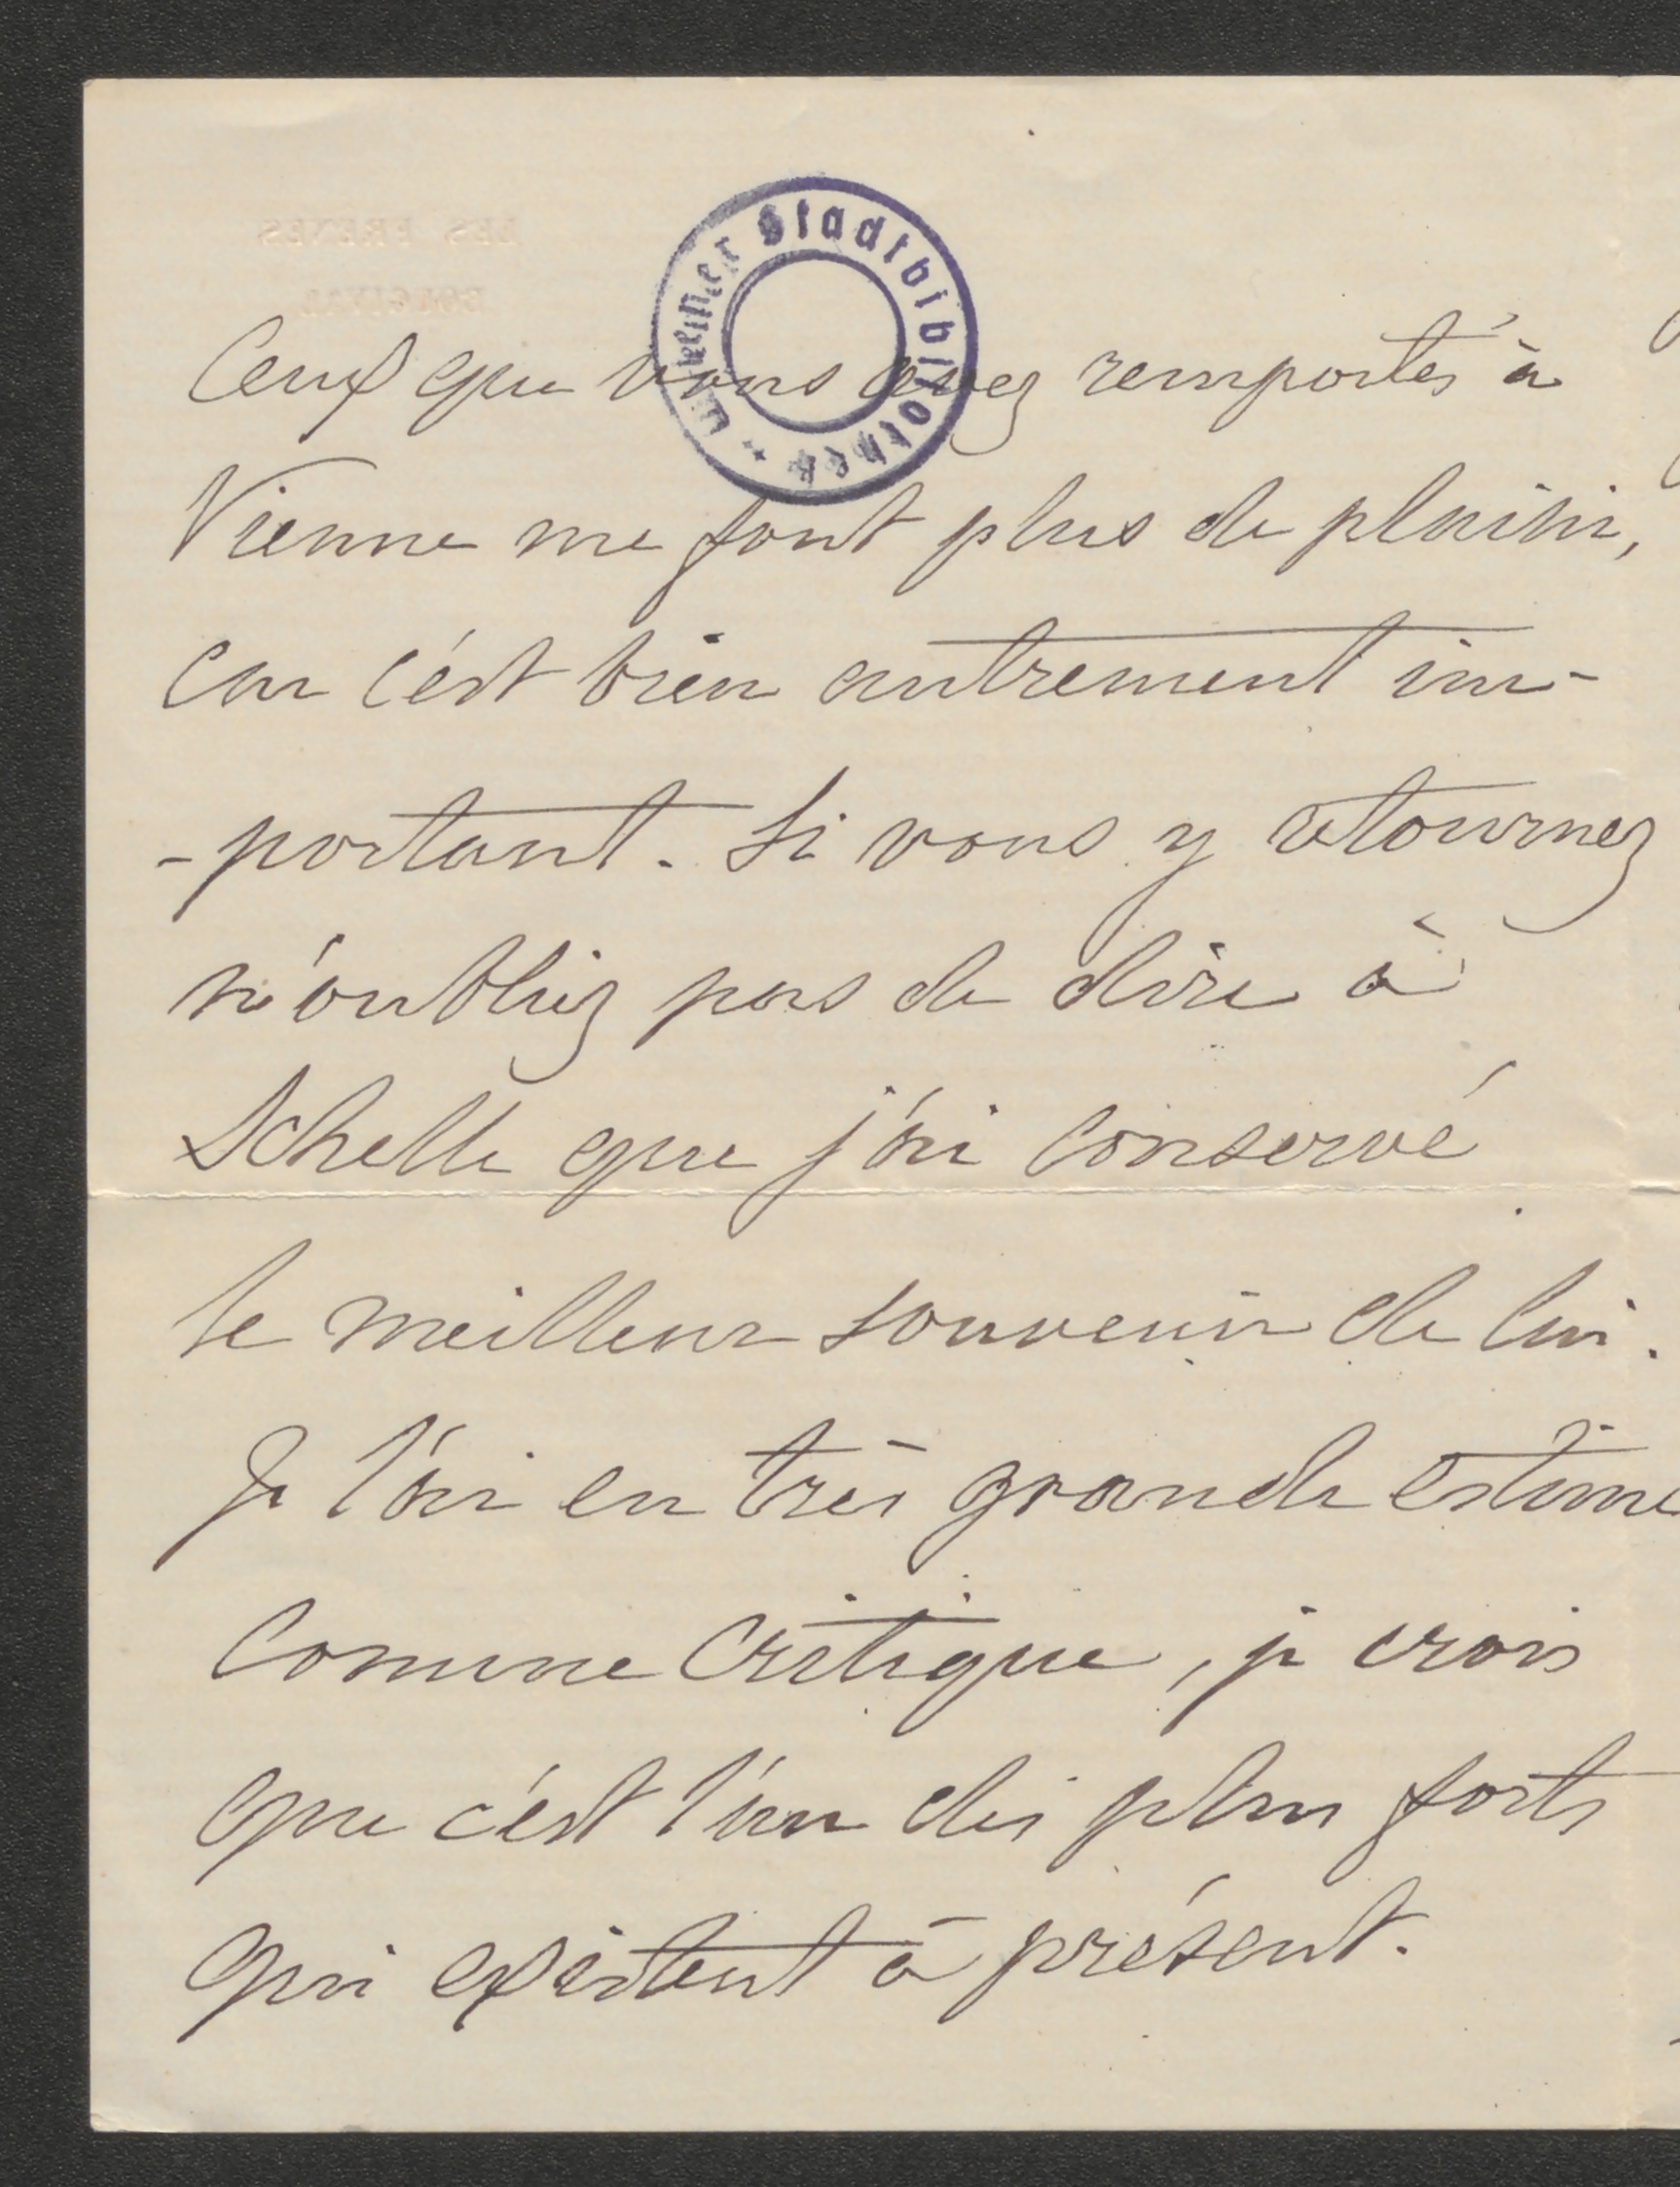 LES FRENES
BOUGIVAL
Wiener Stadtbibliothek
Ceux que vous avez remportés à
Vienne me font plus de plaisir,
car c'est bien autrement im-
-portant. Si vous y retournez
n'oubliez pas de dire à
Schelle que j'ai conservé
le meilleur souvenir de lui.
Je l'ai en très grande estime
comme critique, je crois
que c'est l'un des plus forts
qui existent à présent.